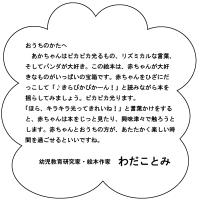 おうちのかたへ
あかちゃんはピカピカ光るもの、リズミカルな言葉、
そしてパンダが大好き。この絵本は、赤ちゃんが大好
きなものがいっぱいの宝箱です。赤ちゃんをひざにだ
っこして「♪きらぴかぴかーん！」と読みながら本を
揺らしてみましょう。ピカピカ光ります。
「ほら、キラキラ光ってきれいね！」と言葉かけをする
と、赤ちゃんは本をじっと見たり、興味津々で触ろうと
します。赤ちゃんとおうちの方が、あたたかく楽しい時
間を過ごせるといいですね。
幼児教育研究家・絵本作家 わだことみ